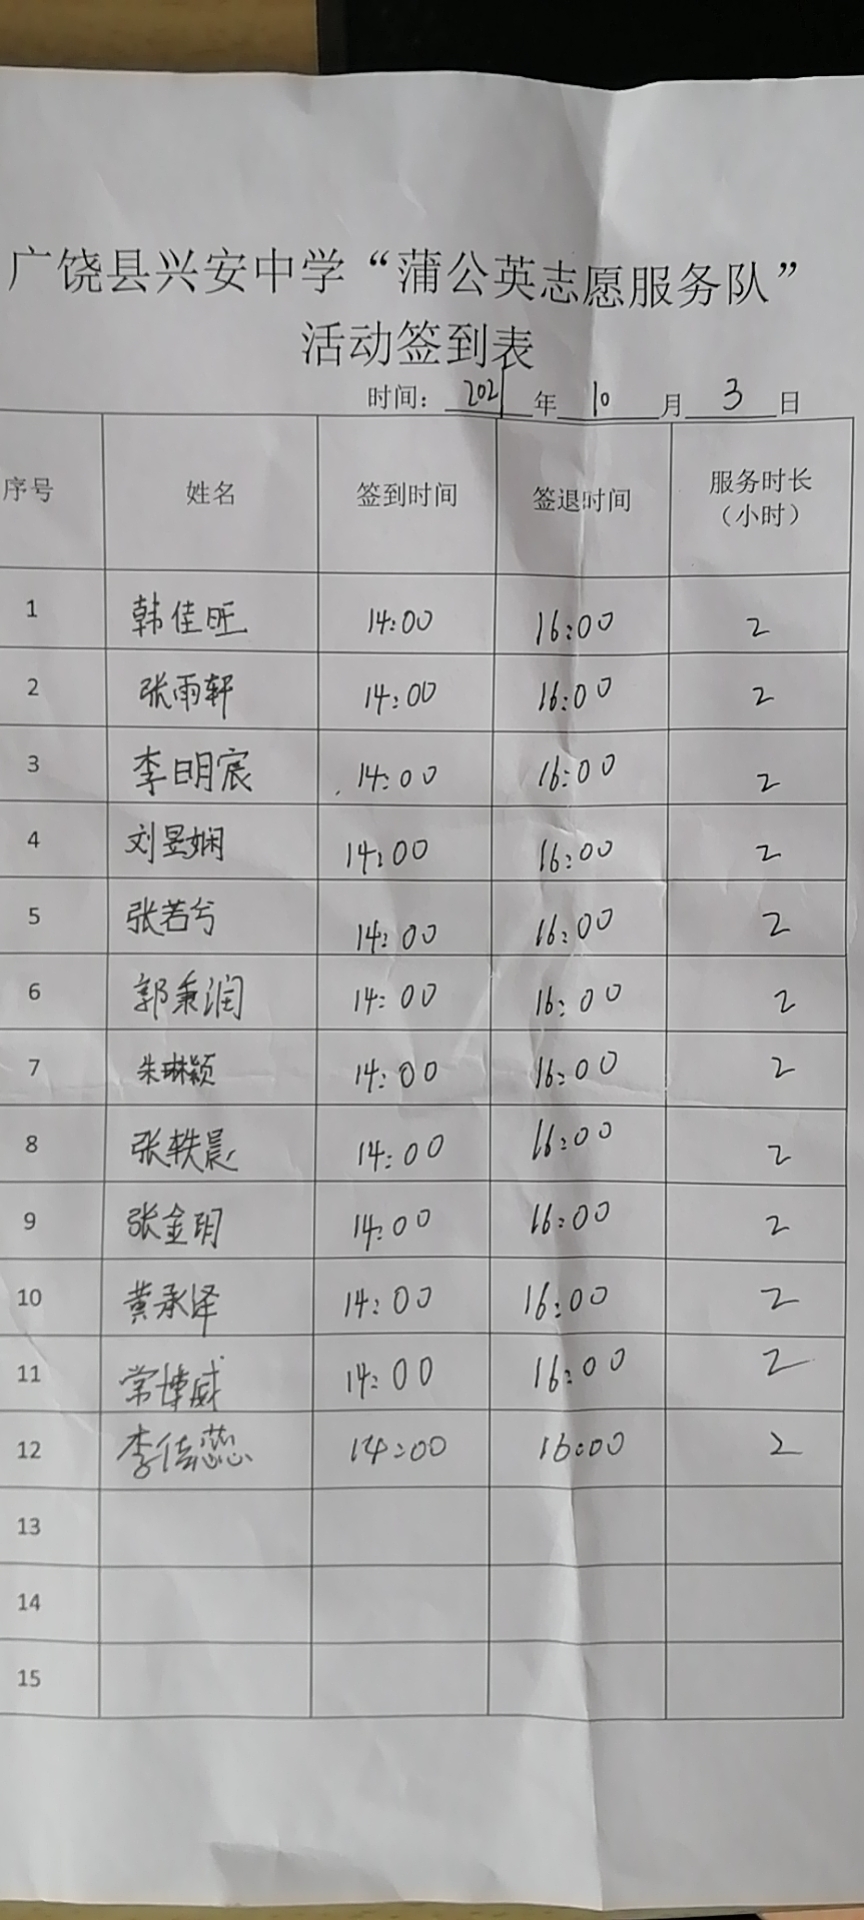 广饶县兴安中学“蒲公英志愿服务队”
活动签到表
时间： 2021 年 10 月 3 日
序号 姓名 签到时间 签退时间 服务时长（小时）
1 韩佳旺 14:00 16:00 2
2 张雨轩 14:00 16:00 2
3 李明宸 14:00 16:00 2
4 刘昱娴 14:00 16:00 2
5 张若兮 14:00 16:00 2
6 郭秉润 14:00 16:00 2
7 朱琳颖 14:00 16:00 2
8 张轶晨 14:00 16:00 2
9 张金玥 14:00 16:00 2
10 黄承泽 14:00 16:00 2
11 常博威 14:00 16:00 2
12 李佳蕊 14:00 16:00 2
13
14
15